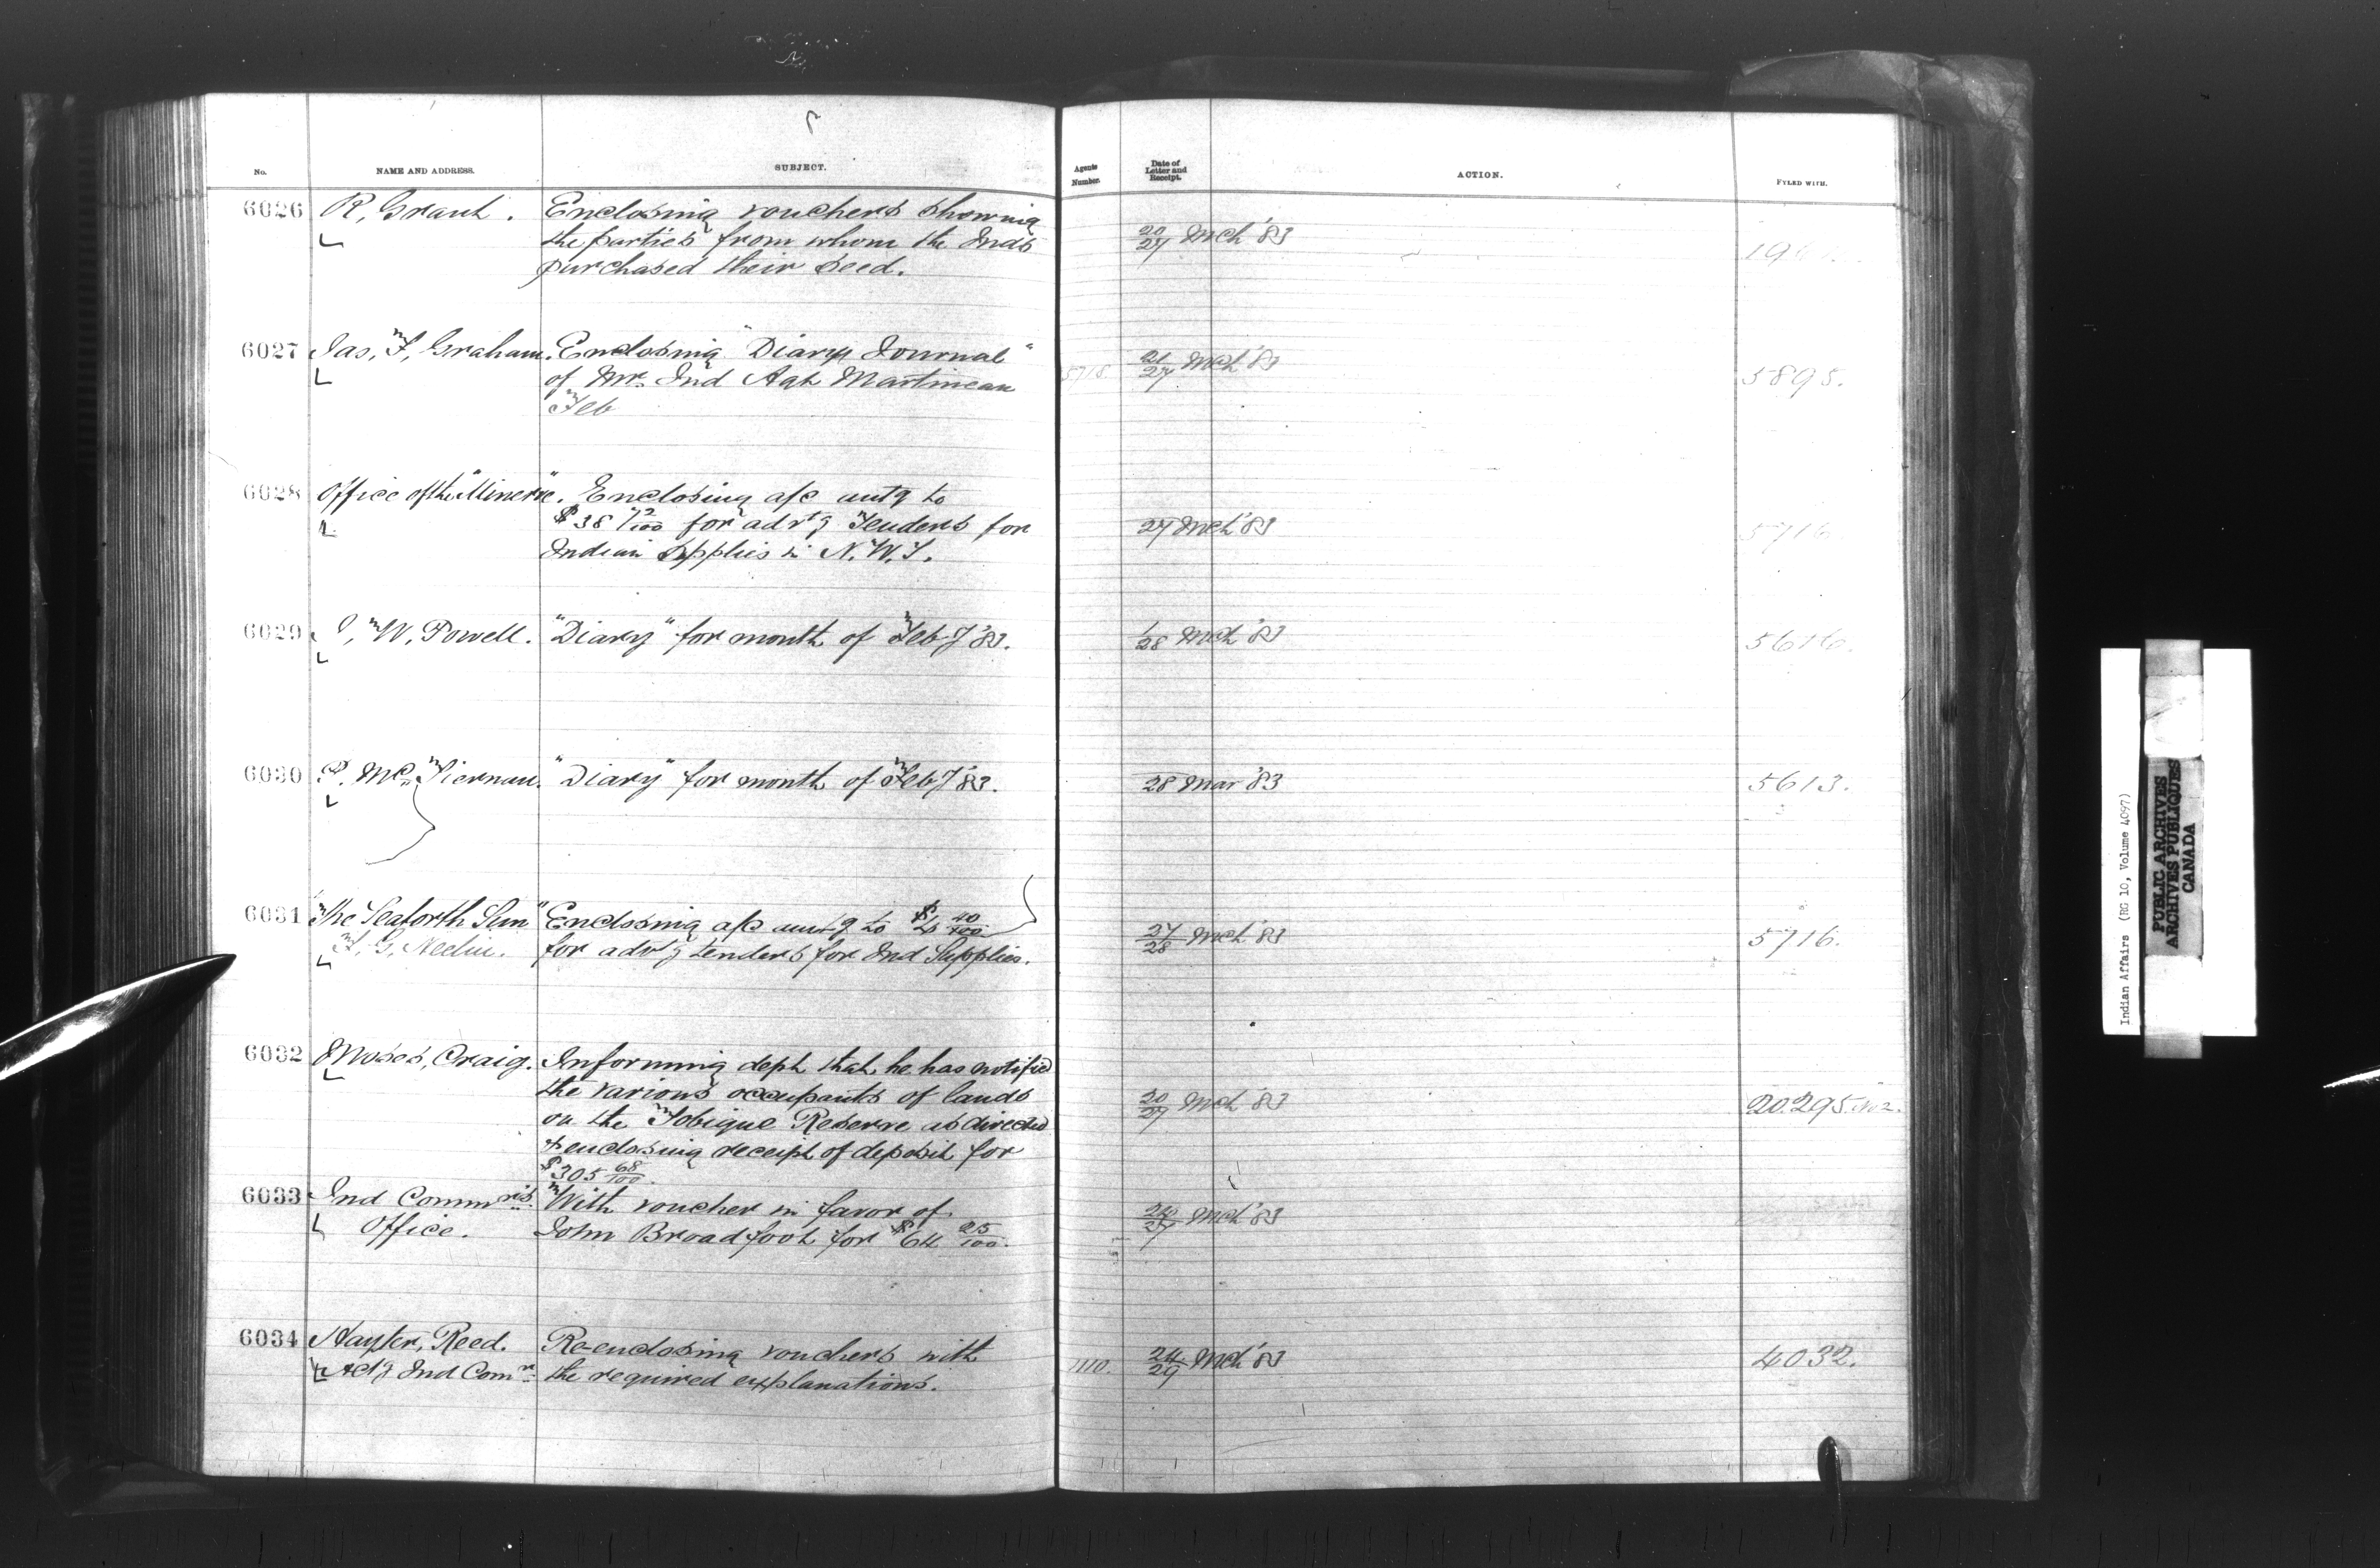 No.
NAME AND ADDRESS.
SUBJECT.
Agents Number.
Date of Letter and Receipt.
ACTION.
FYLED WITH.
6026 R, Grant. Enclosing vouchers showing
the parties from whom the Inds
purchased their seed.
20/27 Mch '83
6027 Jas, F, Graham. Enclosing "Diary Journal"
of Mr. Ind Agt Martineau
Feb
5718
21/27 Mch '83
5895.
6028 Office of the "Minerve". Enclosing a/c amtg to
$38 72/100 for advtg Tenders for
Indian Supplies in N.W.T.
27 Mch '83
5716
6029 I, W, Powell. "Diary" for month of Feby '83.
1/28 Mch '83
5616.
6030 P. McTiernan. "Diary" for month of Feby '83.
28 Mar '83
5613.
6031 "The Seaforth Sun" Enclosing a/c amtg to $ 40/100
F, G, for advtg tenders for Ind Supplies.
27/28 Mch '83
5716.
6032 Moses, Craig. Informing dept that he has notified
the various occupants of lands
on the Tobique Reserve as directed
& enclosing receipt of deposit for
$305 68/100.
20/27 Mch '83
20.295. No 2.
6033 Ind Commrs With voucher in favor of
Office. John Broadfoot for $64 25/100.
27 Mch '83
6034 Hayter, Reed. Re-enclosing vouchers with
Actg Ind Comr the required explanations.
1110.
24/29 Mch '83
4032.
Indian Affairs (RG 10, Volume 4097)
PUBLIC ARCHIVES
ARCHIVES PUBLIQUES
CANADA